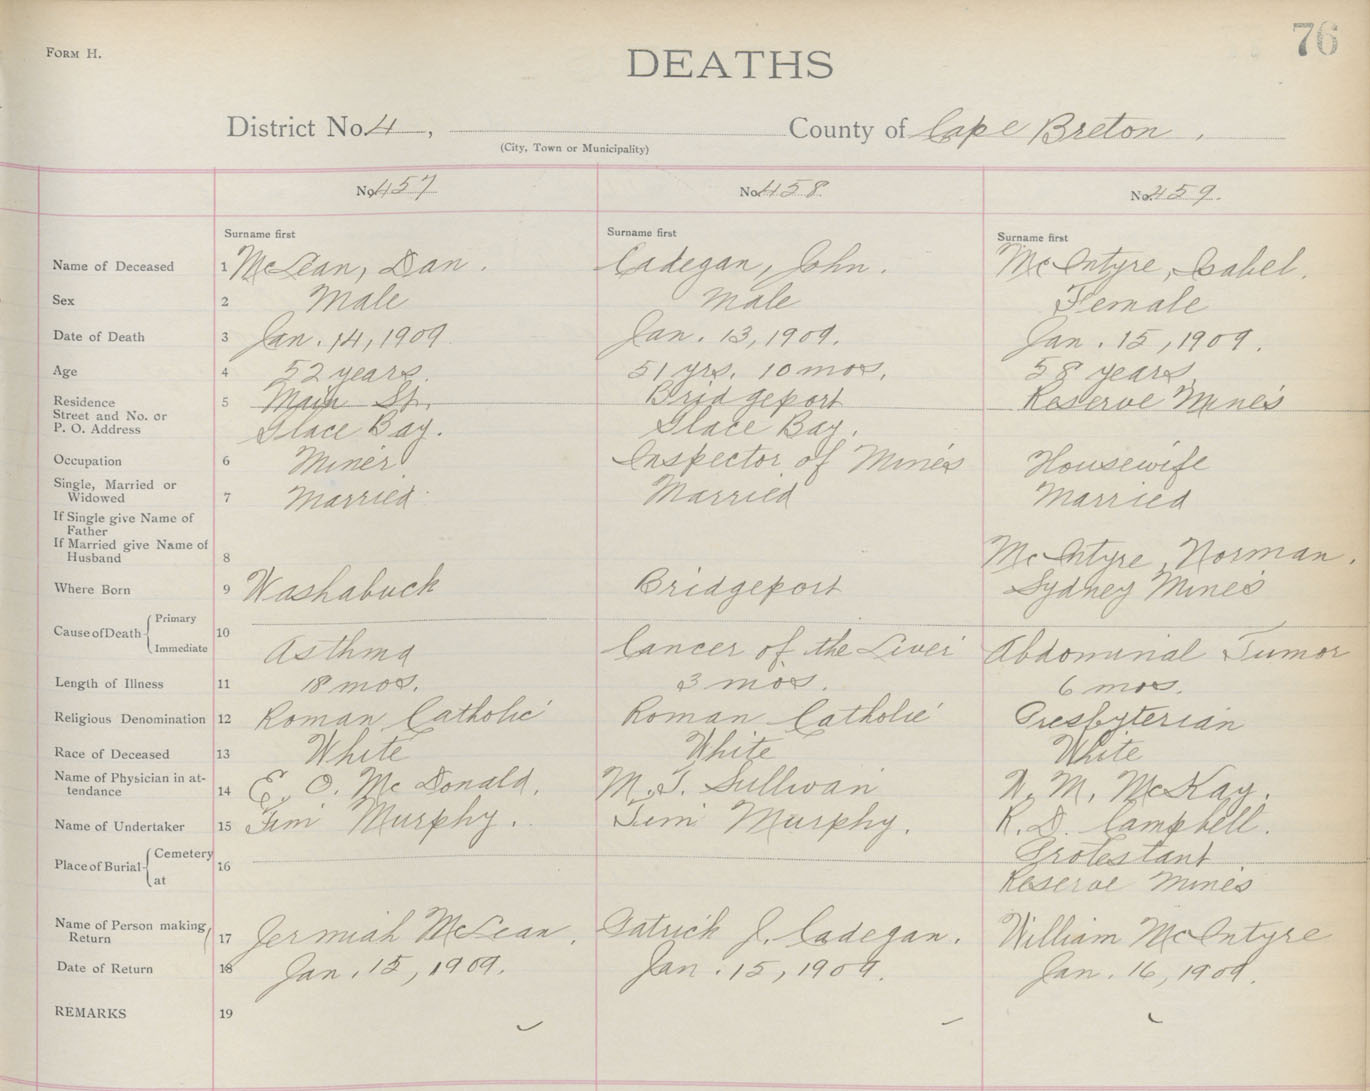 76
FORM H.
DEATHS
District No. 4, County of Cape Breton.
(City, Town or Municipality)
No. 457 No. 458 No. 459.
Surname first Surname first Surname first
Name of Deceased 1 McLean, Dan. Cadegan, John. McIntyre, Isabel.
Sex 2 Male Male Female
Date of Death 3 Jan. 14, 1909 Jan. 13, 1909. Jan. 15, 1909.
Age 4 52 years. 51 yrs. 10 mos. 58 years.
Residence 5 Main St. Bridgeport Reserve Mines
Street and No. or
P. O. Address Glace Bay. Glace Bay.
Occupation 6 Miner Inspector of Mines Housewife
Single, Married or
Widowed 7 Married Married Married
If Single give Name of
Father
If Married give Name of
Husband 8 McIntyre, Norman.
Where Born 9 Washabuck Bridgeport Sydney Mines
Cause of Death Primary
10
Immediate Asthma Cancer of the Liver Abdominal Tumor
Length of Illness 11 18 mos. 3 mos. 6 mos.
Religious Denomination 12 Roman Catholic Roman Catholic Presbyterian
Race of Deceased 13 White White White
Name of Physician in at-
tendance 14 E. O. McDonald. M. T. Sullivan W. M. McKay.
Name of Undertaker 15 Jim Murphy. Jim Murphy. R. D. Campbell.
Place of Burial Cemetery 16 Protestant
at Reserve Mines
Name of Person making
Return 17 Jermiah McLean. Patrick J. Cadegan. William McIntyre
Date of Return 18 Jan. 15, 1909. Jan. 15, 1909. Jan. 16, 1909.
REMARKS 19